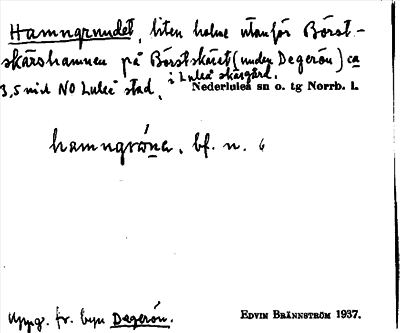 Hamngrundet, liten holme utanför Börst-
skärshamnen på Börstskäret (under Degerön) ca
3,5 mil NO Luleå stad, i Luleå skärgård.
Nederluleå sn o. tg Norrb. l.
bf. n.
Uppg. fr. byn Degerön.
EDVIN BRÄNNSTRÖM 1937.